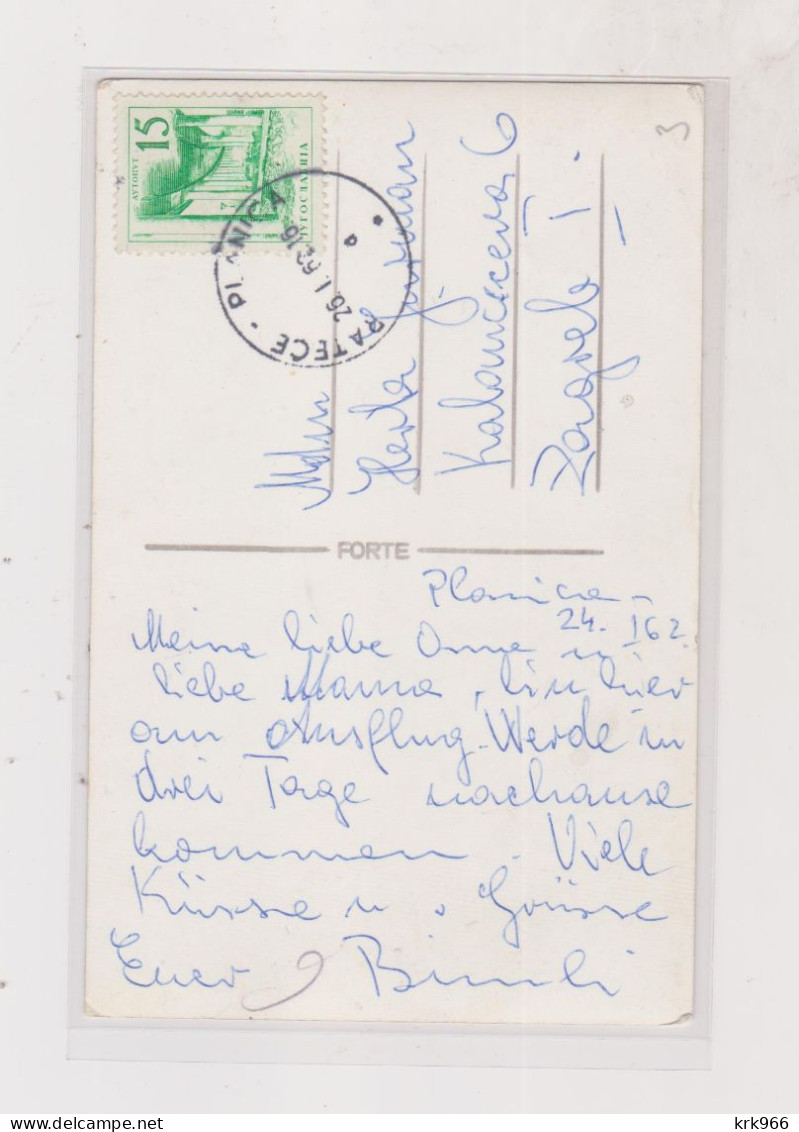 15
АУТОПУТ
ЈУГОСЛАВИЈА
RATEČE - PLANICA
26.1.62 16
3
Herta
Zagreb I.
FORTE
Planica
24. I 62.
Meine liebe Oma u
liebe Mama, bin hier
am Ausflug. Werde in
drei Tage nachause
kommen. Viele
Küsse u. Grüsse
Euer Bimli
delcampe.net
krk966